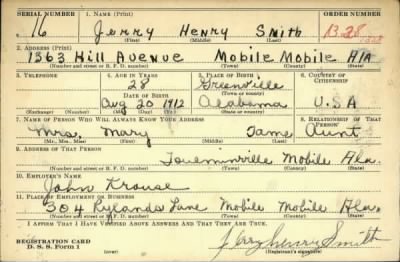 SERIAL NUMBER 1. NAME (Print) ORDER NUMBER
16 Jerry Henry Smith
(First) (Middle) (Last)
2. ADDRESS (Print)
1363 Hill Avenue Mobile Mobile Ala
(Number and street or R. F. D. number) (Town) (County) (State)
3. TELEPHONE 4. AGE IN YEARS 5. PLACE OF BIRTH 6. COUNTRY OF CITIZENSHIP
28 Greenville
DATE OF BIRTH (Town or county)
Aug 20 1912 Alabama U.S.A
(Exchange) (Number) (Mo.) (Day) (Yr.) (State or country)
7. NAME OF PERSON WHO WILL ALWAYS KNOW YOUR ADDRESS 8. RELATIONSHIP OF THAT PERSON
Mrs. Mary Aunt
(Mr., Mrs., Miss) (First) (Middle) (Last)
9. ADDRESS OF THAT PERSON
Mobile Ala.
(Number and street or R. F. D. number) (Town) (County) (State)
10. EMPLOYER'S NAME
John Krouse
11. PLACE OF EMPLOYMENT OR BUSINESS
304 Rylands Lane Mobile Mobile Ala.
(Number and street or R. F. D. number) (Town) (County) (State)
I AFFIRM THAT I HAVE VERIFIED ABOVE ANSWERS AND THAT THEY ARE TRUE.
REGISTRATION CARD
D. S. S. Form 1 Jerry Henry Smith
(Registrant's signature)